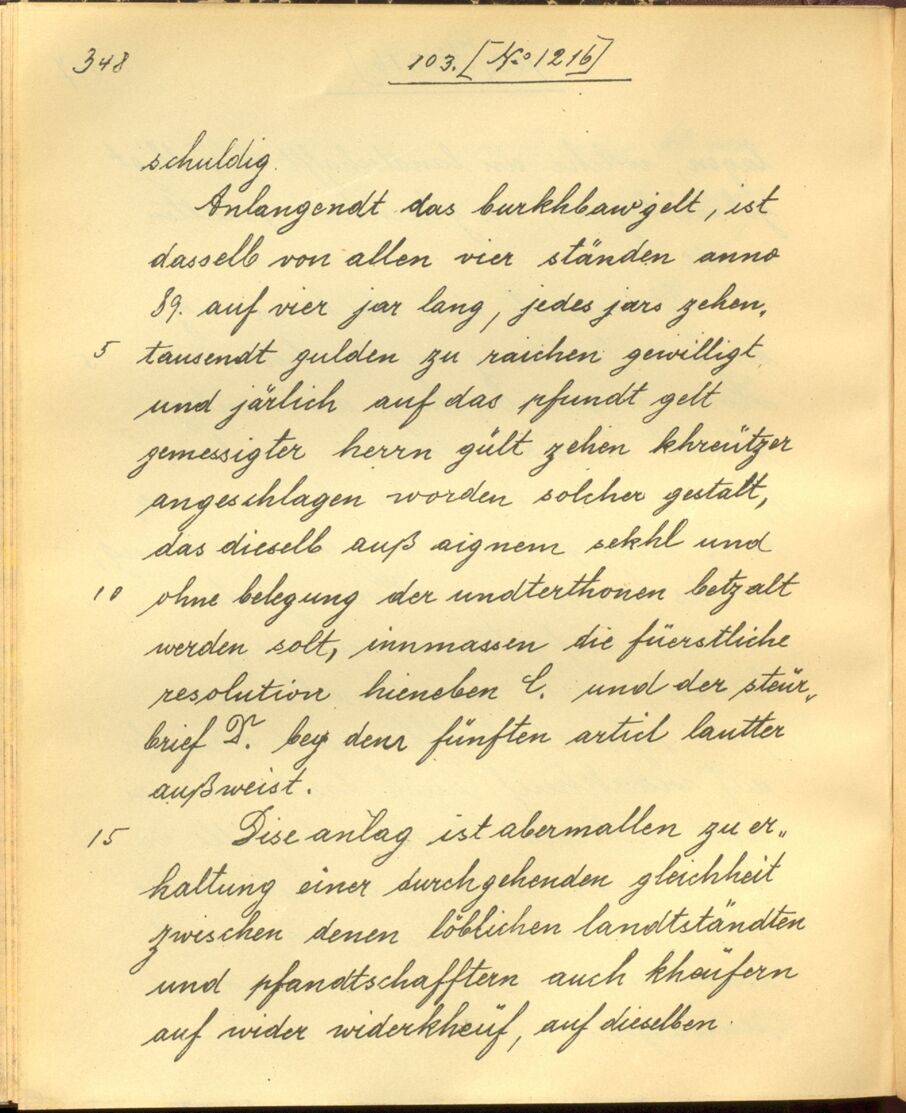 348
103. [No 1216]
schuldig.
Anlangendt das burkhbawgelt, ist
dasselb von allen vier ständen anno
89. auf vier jar lang, jedes jars zehen„
5 tausendt gulden zu raichen gewilligt
und järlich auf das pfundt gelt
gemessigter herrn gült zehen khreützer
angeschlagen worden solcher gestalt,
das dieselb auß aignem sekhl und
10 ohne belegung der undterthonen betzalt
werden solt, innmassen die füerstliche
resolution hieneben C. und der steür„
brief D. bey dem fünften articl lautter
außweist.
15 Dise anlag ist abermallen zu er„
haltung einer durchgehenden gleichheit
zwischen denen löblichen landtständten
und pfandtschafftern auch kheüfern
auf wider widerkheüf, auf dieselben